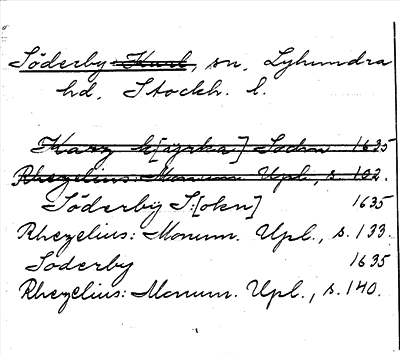 Söderby Karl, sn, Lyhundra
hd, Stockh. l.
Karg k[yrka] Sochn 1635
Rhezelius: Monum. Upl., s. 102.
Söderby S:[okn] 1635
Rhezelius: Monum. Upl., s. 133.
Soderby 1635
Rhezelius: Monum. Upl., s. 140.